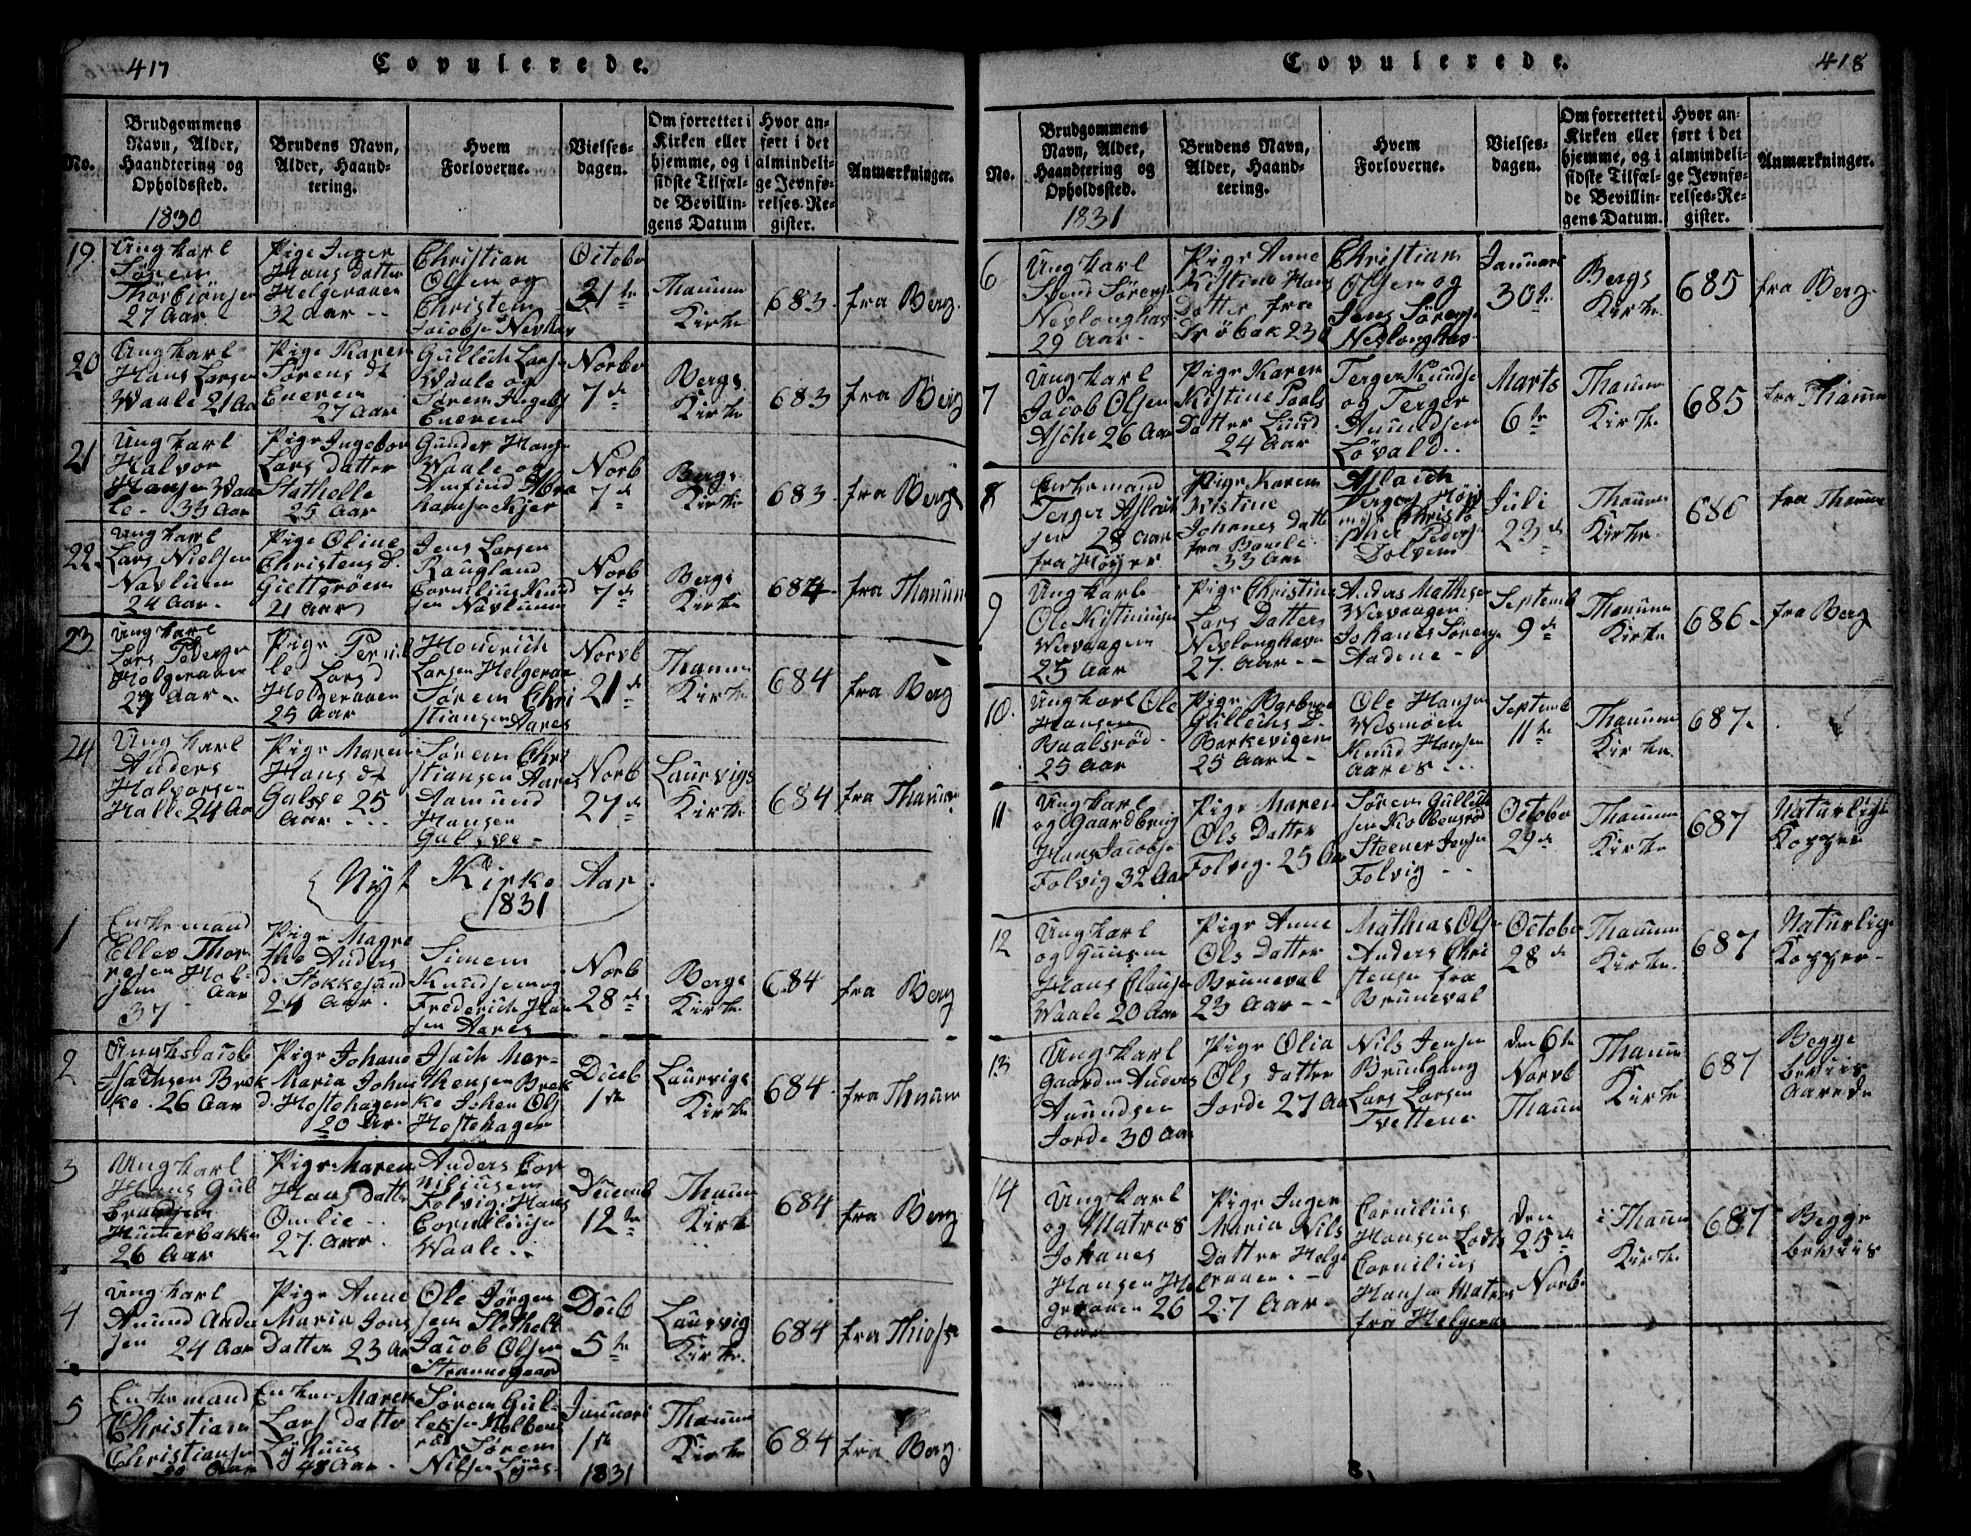 417
Copulerede.
No.
Brudgommens
Navn, Alder,
Haandtering og
Opholdssted.
1830
Brudens Navn,
Alder, Haand-
tering.
Hvem
Forloverne.
Vielses-
dagen.
Om forrettet i
Kirken eller
hjemme, og i
sidste Tilfæl-
de Bevillin-
gens Datum
Hvor an-
ført i det
almindeli-
ge Jevnfø-
relses-Re-
gister.
Anmærkninger.
19
Ungkarl
Sören
Thorbiönsen
27 Aar
Pige Inger
Hans datter
Helgeraaen
32 aar
Christian
Olsen og
Christen
Jacobs Nevhav
Octobr
31te
Thanum
Kirke
683
fra Berg
20
Ungkarl
Hans Larsen
Waale 21 Aar
Pige Karen
Sörens dt
Eneren
27 Aar
Gullich Lars
Waale og
Sören Ingebs
Eneren
Norbr
7de
Bergs
Kirke
683
fra Berg
21
Ungkarl
Halvor
Hansen Waa
le 33 Aar
Pige Ingebor
Lars datter
Stathelle
25 Aar
Gunder Hans
Waale og
Amfind Abra
hamsen Kjær
Norb
7de
Bergs
Kirke
683
fra Berg
22
Ungkarl
Lars Nielsen
Navluen
24 Aar
Pige Oline
Christens d.
Giettgröen
21 Aar
Jens Larsen
Raugland
Cornilius Knud
sen Navluen
Norb
7de
Bergs
Kirke
684
fra Thanum
23
Ungkarl
Lars Peders
Helgeraaen
Pige Pernil
le Lars d
Helgeraaen
25 Aar
Hendrich
Larsen Helgeraa
Sören Chri
stiansen Aares
Norvb
21de
Thanum
Kirke
684
fra Berg
24
Ungkarl
Anders
Halvorsen
Halle 24 Aar
Pige Maren
Hans dt
Galsve 25
Aar
Sören Chri
stiansen Aares
Aamund
Hansen
Galsve
Norb
27de
Laurvigs
Kirke
684
fra Thanum
Nyt Kirke Aar
1831
1
Enkemand
Ellev Thor
resen Hol-
sem Aar
37
Pige Magre
the Anders
d. Stokkesund
24 Aar
Simen
Knudsen og
Frederich Han
sen Aares
Norb
28de
Bergs
Kirke
684
fra Berg
2
Ungk Jacob
Isachsen Brek
ke 26 Aar
Pige Johane
Maria Johns
d. Hostehagen
20 Ar
Isach Mar-
thensen Brek
ke Johen Ols
Hostehagen
Deceb
1ste
Laurvigs
Kirke
684
fra Thanum
3
Ungkarl
Hans Gul
brandsen
Hunnerbakke
26 Aar
Pige Maren
Hans datter
Omlie
27 Aar
Anders Cor
niliusen
Folvig, Hans
Corniliusen
Waale
Decemb
12te
Thanum
Kirke
684
fra Berg
4
Ungkarl
Anund Ander
sen 24 Aar
Pige Anne
Maria Jons
Datter 23 Ar
Ole Jörgen
sen Slethelt
Jacob Olsen
Strannegaard
Dceb
5te
Laurvig
Kirke
684
fra Thiøs
5
Enkemand
Christian
Christiansen
Aar
Enken Maren
Lars datter
48 Aar
Sören Gul-
leksen Kolbens
röd Sören
Nilsen
Januari
1ste
1831
Thanum
Kirke
684
fra Berg
418
Copulerede.
No.
Brudgommens
Navn, Alder,
Haandtering og
Opholdssted.
1831
Brudens Navn,
Alder, Haand-
tering.
Hvem
Forloverne.
Vielses-
dagen.
Om forrettet i
Kirken eller
hjemme, og i
sidste Tilfæl-
de Bevillin-
gens Datum.
Hvor an-
ført i det
almindeli-
ge Jevnfø-
relses-Re-
gister.
Anmærkninger.
6
Ungkarl
Svend Sörens
Nevlonghav
29 Aar
Pige Anne
Kistine Hans
Datter fra
Dröbak 23
Christian
Olsen og
Jens Sörens
Nevlonghav
Januari
30te
Bergs
Kirke
685
fra Berg
7
Ungkarl
Jacob Olsen
Asche 26 Aar
Pige Karen
Kistine Pouls
Datter Lund
24 Aar
Terger Knudse
og Terger
Anundsen
Lövald
Marts
6te
Thanum
Kirke
685
fra Thanum
8
Enkemand
Terger Aslach
sen 28 Aar
fra Höyer
Pige Karen
Kristine
Johanes datt
fra Bamle
33 Aar
Aslach
Tergers Höj
Christo
pher Peders
Dolven
Juli
23de
Thanum
Kirke
686
fra Thanum
9
Ungkarl
Ole Kistiansen
Wevaagen
25 Aar
Pige Christine
Lars Datter
Nevlonghavn
27 Aar
Anders Mathisen
Wevaagen
Johanes Sörens
Aadene
Septemb
9de
Thanum
Kirke
686
fra Berg
10
Ungkarl Ole
Hansen
Baalsröd
25 Aar
Pige Berbroe
Gulleichs d.
Barkevigen
25 Aar
Ole Hansen
Wesmöen
Knud Hansen
Aares
Septemb
11te
Thanum
Kirke
687
11
Ungkarl
og Gaardbrug
Hans Jacobse
Folvig 32 Aar
Pige Maren
Ols Datter
Folvig 25 Aar
Sören Gullich
sen Kolbensröd
Steener Jensen
Folvig
Octobr
29de
Thanum
Kirke
687
Naturlige
Kopper
12
Ungkarl
og
Hans Clausen
Waale 20 Aar
Pige Anne
Ols Datter
Bruneval
23 Aar
Mathias Olse
Anders Chri
stensen fra
Bruneval
Octobr
28de
Thanum
Kirke
687
Naturlig
Kopper
13
Ungkarl
Gaardm Anders
Anundsen
Jorde 30 Aar
Pige Olia
Ols datter
Jorde 27 Aar
Nils Jensen
Brunlgang
Lars Larsen
Tvettene
den 6te
Norvb
Thanum
Thanum
Kirke
687
Begge
beviis
Aarede
14
Ungkarl
og Matros
Johanes
Hansen Hel
geraaen 26
Aar
Pige Inger
Maria Nils
Datter Helge
raaen
27 Aar
Cornilius
Hansen Lods
Cornilius
Hansen Matros
fra Helgeraa
Den
25de
Norbr
i Thanum
Kirke
687
Begge
beviis